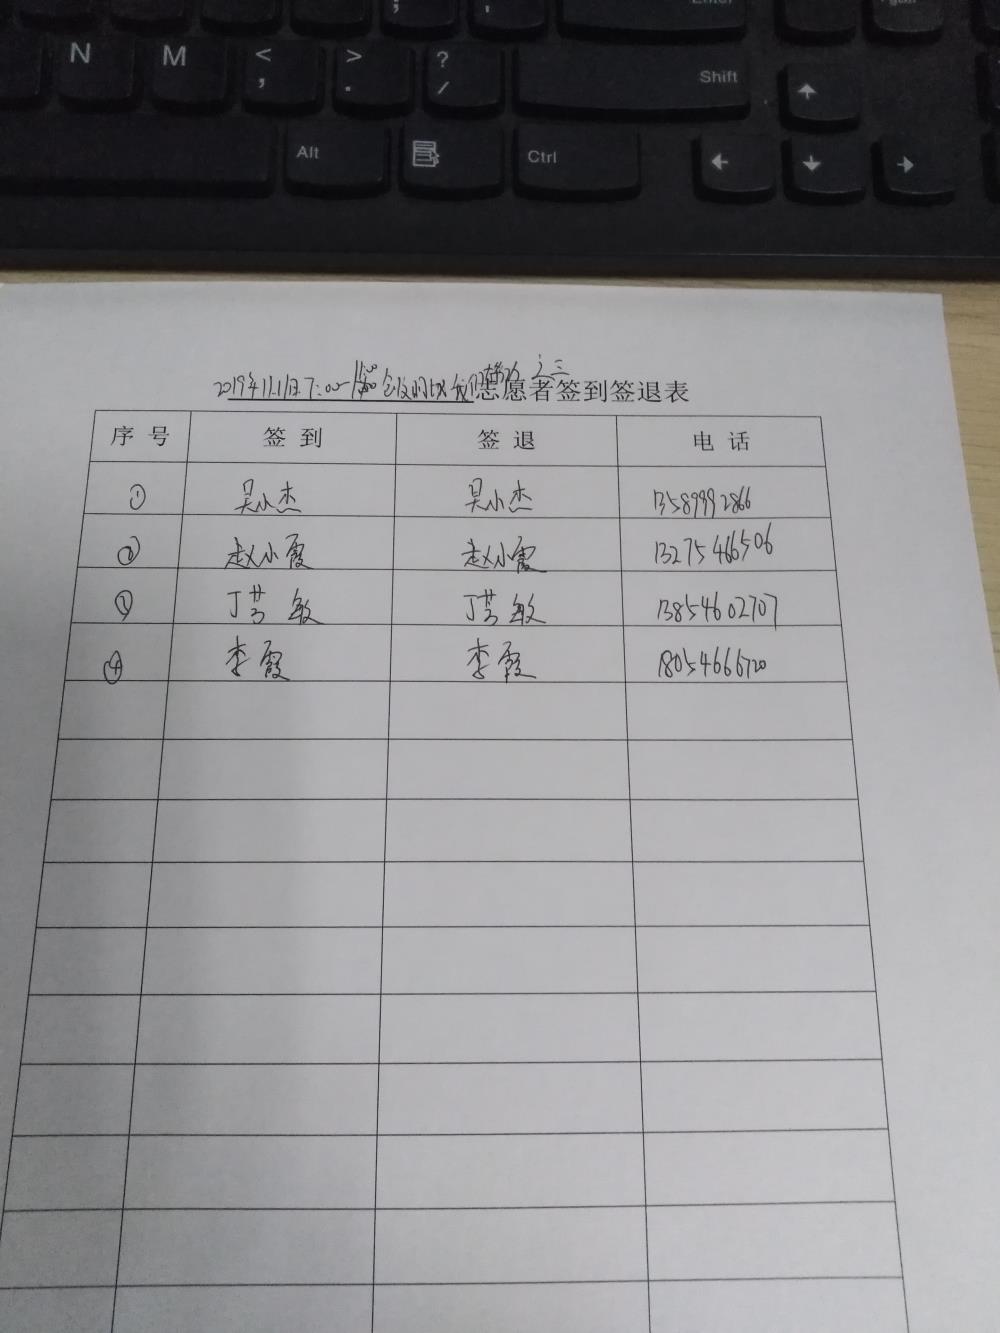 ; Enter
N M < , > . ? / Shift
Alt Ctrl
之三
2019年11.11日7:00- 志愿者签到签退表
序号 签到 签退 电话
① 吴小杰 吴小杰 13589992866
② 赵小霞 赵小霞 13275466506
③ 丁芳敏 丁芳敏 13854602707
④ 李霞 李霞 18054666720